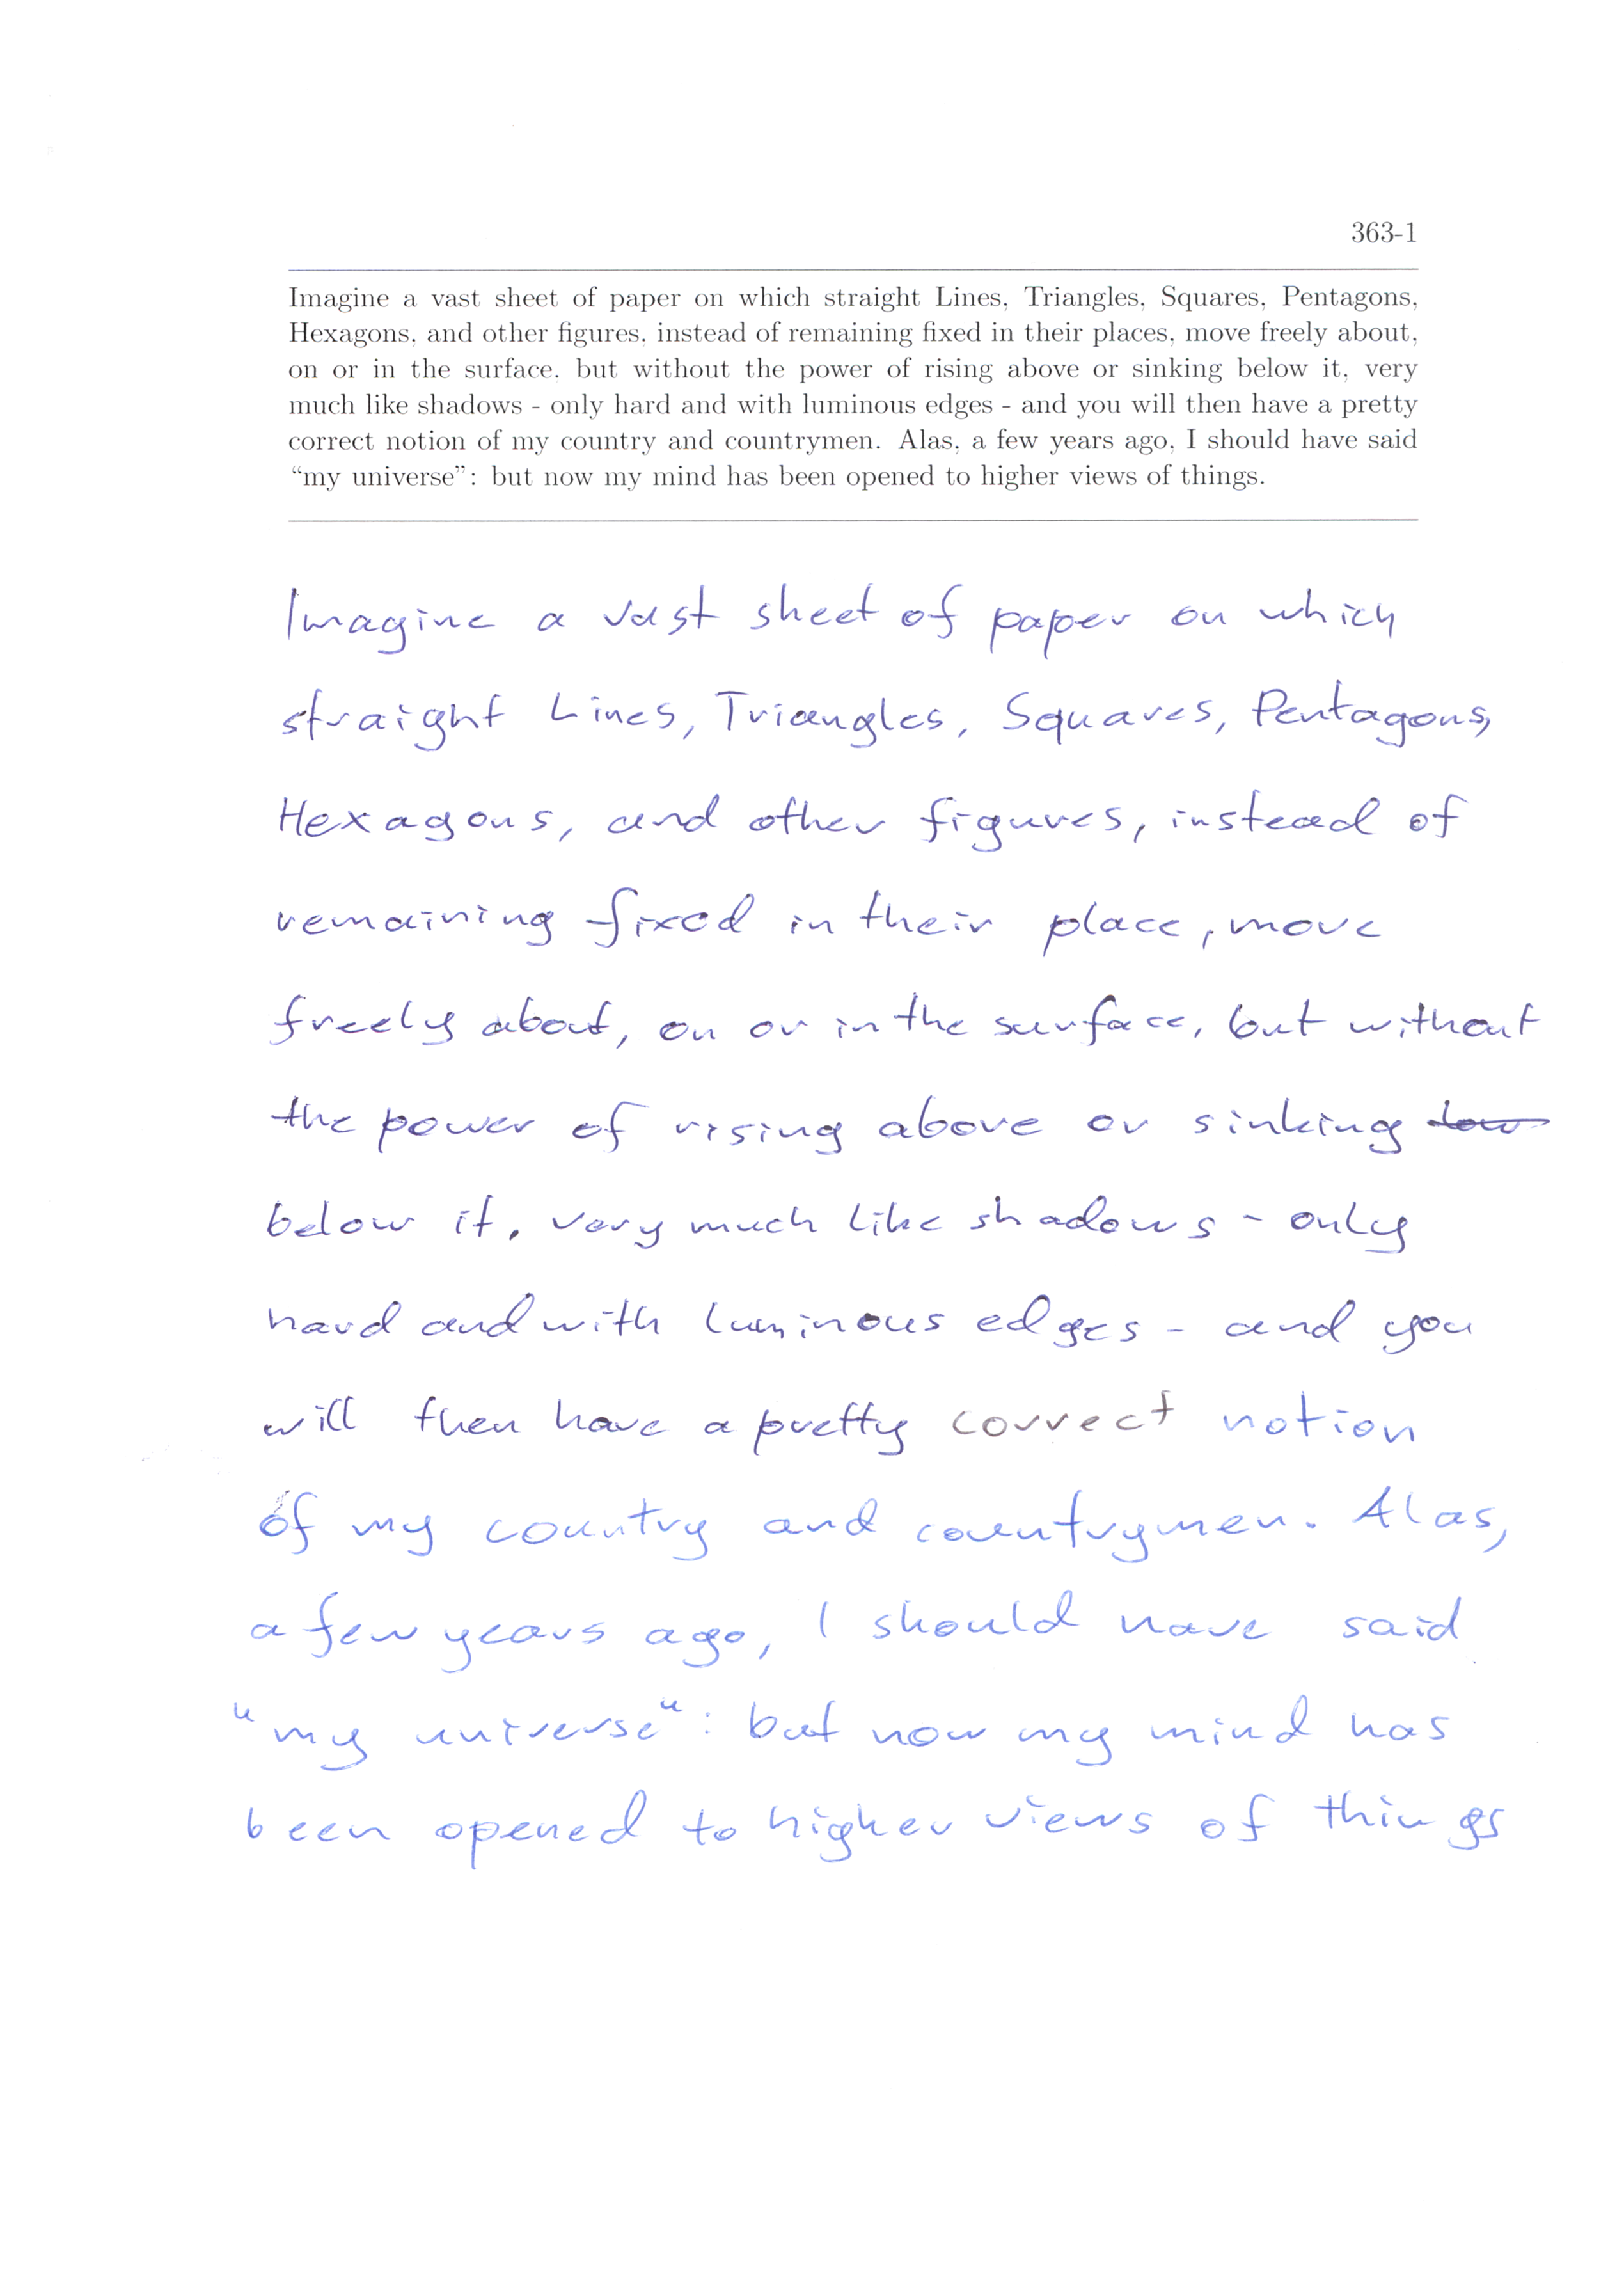 363-1
Imagine a vast sheet of paper on which straight Lines, Triangles, Squares, Pentagons,
Hexagons, and other figures, instead of remaining fixed in their places, move freely about,
on or in the surface, but without the power of rising above or sinking below it, very
much like shadows - only hard and with luminous edges - and you will then have a pretty
correct notion of my country and countrymen. Alas, a few years ago, I should have said
“my universe”: but now my mind has been opened to higher views of things.
Imagine a vast sheet of paper on which
straight Lines, Triangles, Squares, Pentagons,
Hexagons, and other figures, instead of
remaining fixed in their place, move
freely about, on or in the surface, but without
the power of rising above or sinking low
below it, very much like shadows - only
hard and with luminous edges - and you
will then have a pretty correct notion
of my country and countrymen. Alas,
a few years ago, I should have said
"my universe": but now my mind has
been opened to higher views of things